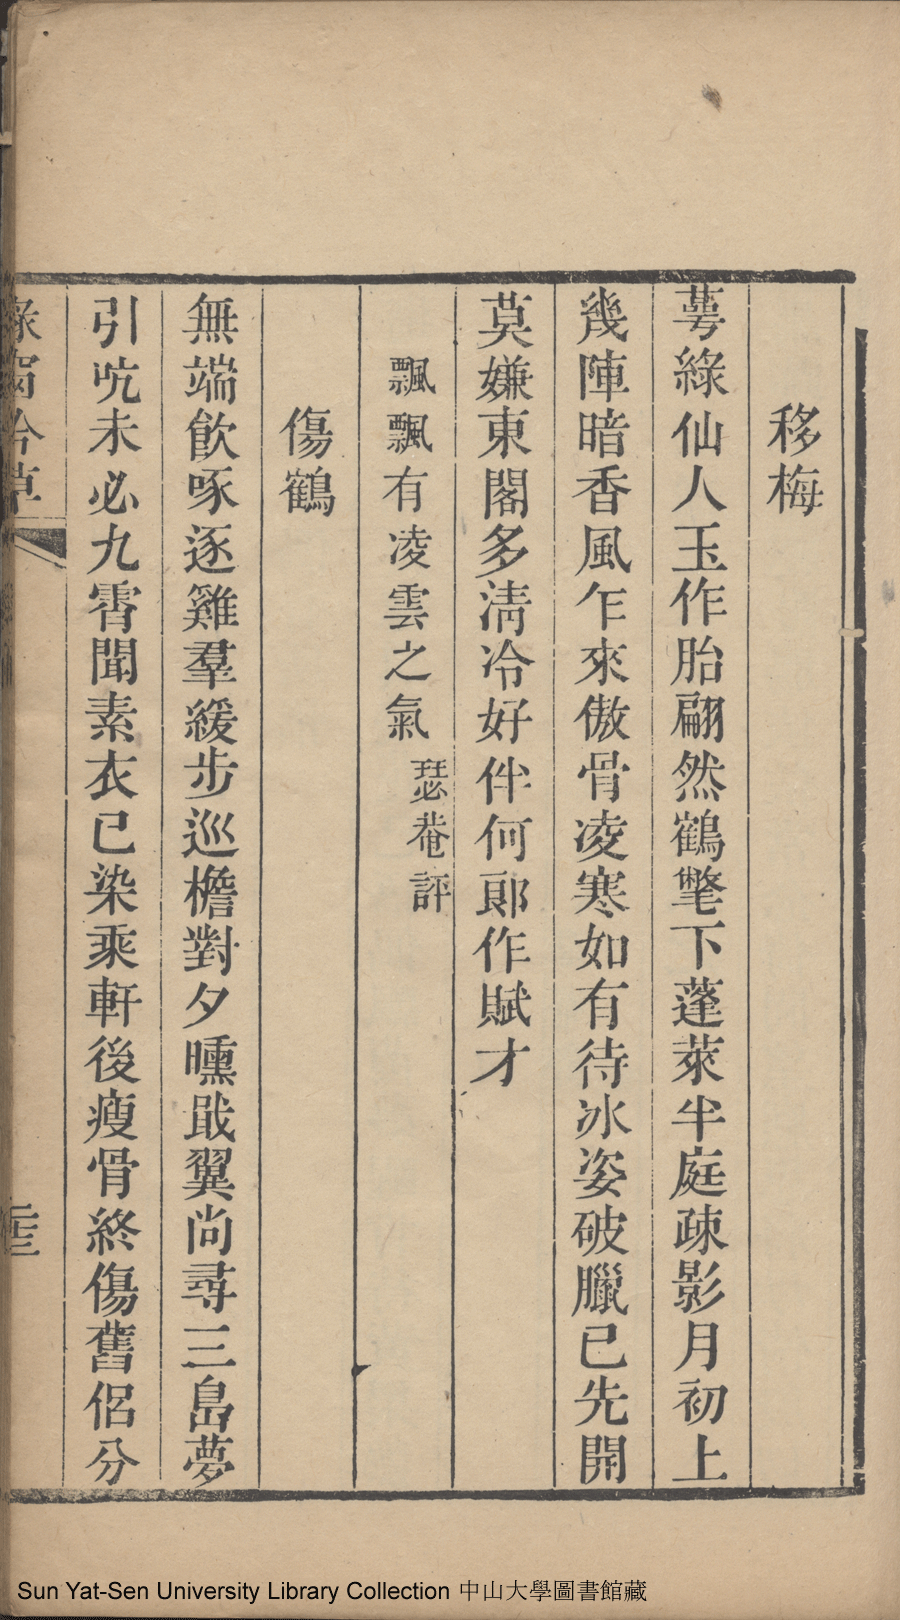 移梅
萼綠仙人玉作胎翩然鶴氅下蓬萊半庭疎影月初上
幾陣暗香風乍來傲骨凌寒如有待冰姿破臘已先開
莫嫌東閣多淸冷好伴何郞作賦才
飄飄有凌雲之氣 瑟菴評
傷鶴
無端飮啄逐雞羣緩步巡檐對夕曛戢翼尙尋三島夢
引吭未必九霄聞素衣已染乘軒後瘦骨終傷舊侶分
Sun Yat-Sen University Library Collection 中山大學圖書館藏